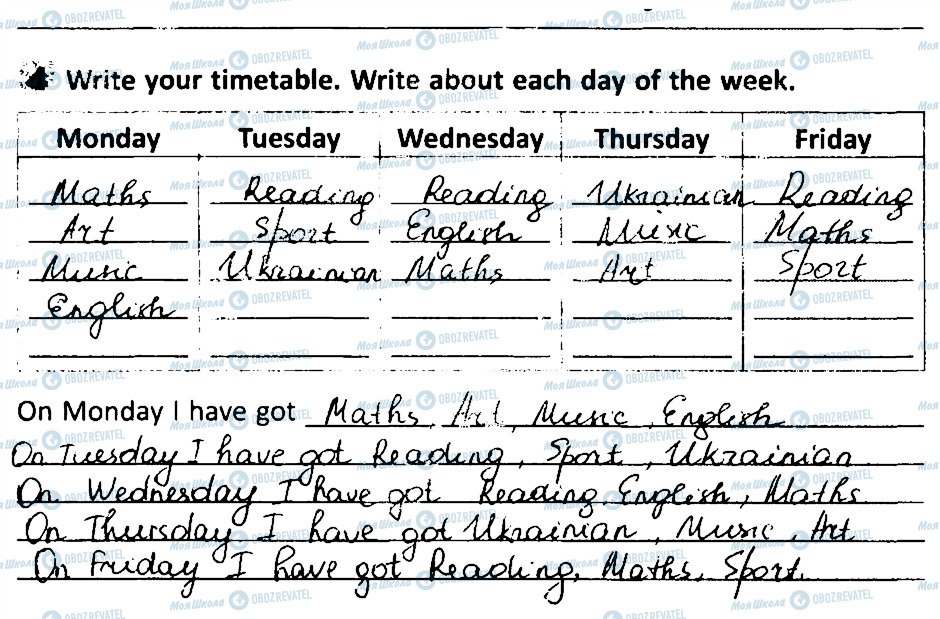 4 Write your timetable. Write about each day of the week.
Monday Tuesday Wednesday Thursday Friday
Maths Reading Reading Ukrainian Reading
Art Sport English Music Maths
Music Ukrainian Maths Art Sport
English
On Monday I have got Maths, Art, Music, English
On Tuesday I have got Reading, Sport, Ukrainian
On Wednesday I have got Reading, English, Maths
On Thursday I have got Ukrainian, Music, Art
On Friday I have got Reading, Maths, Sport.
Моя Школа OBOZREVATEL